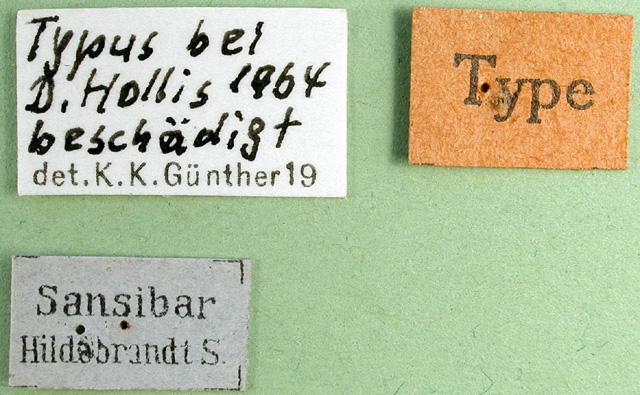 Typus bei
D. Hollis 1964
beschädigt
det. K. K. Günther 19
Type
Sansibar
Hildebrandt S.